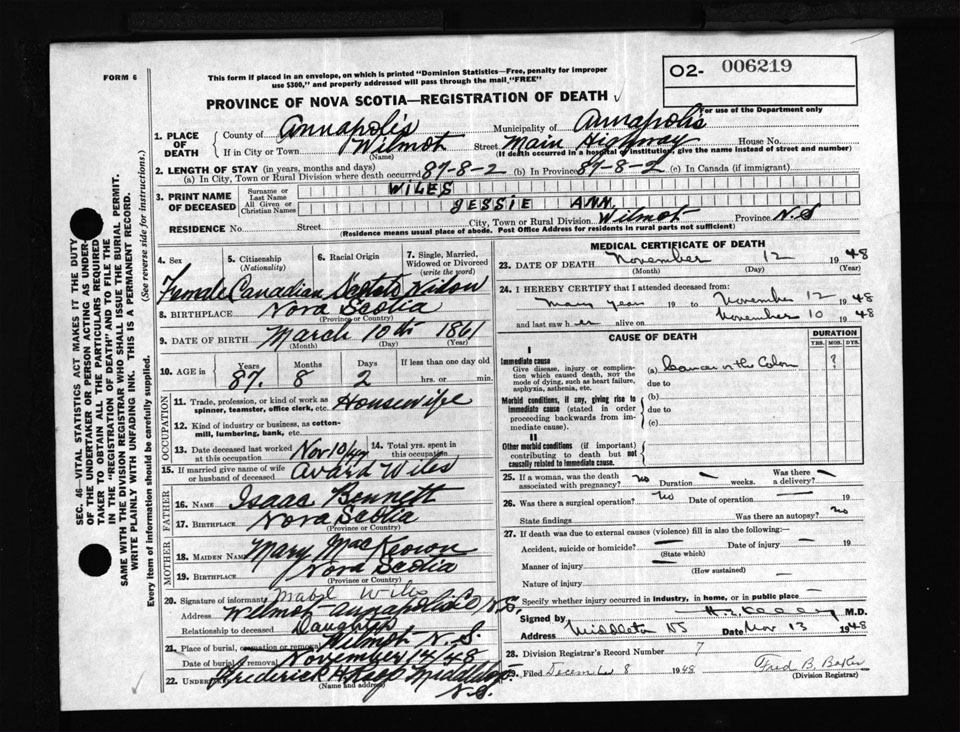 FORM 6
This form if placed in an envelope, on which is printed "Dominion Statistics—Free, penalty for improper
use $300," and properly addressed will pass through the mail "FREE"
O2- 006219
For use of the Department only
PROVINCE OF NOVA SCOTIA—REGISTRATION OF DEATH
1. PLACE OF DEATH County of Annapolis Municipality of Annapolis
If in City or Town Wilmot Street Main Highway House No.
(Name) (If death occurred in a hospital or institution, give the name instead of street and number)
2. LENGTH OF STAY (in years, months and days)
(a) In City, Town or Rural Division where death occurred 87-8-2 (b) In Province 87-8-2 (c) In Canada (if immigrant)
3. PRINT NAME OF DECEASED Surname or Last Name WILES
All Given or Christian Names JESSIE ANN.
RESIDENCE No. Street City, Town or Rural Division Wilmot Province N.S
(Residence means usual place of abode. Post Office Address for residents in rural parts not sufficient)
4. Sex 5. Citizenship (Nationality) 6. Racial Origin 7. Single, Married, Widowed or Divorced (write the word)
Female Canadian Widow
8. BIRTHPLACE Nova Scotia
(Province or Country)
9. DATE OF BIRTH March 10th 1861
(Month) (Day) (Year)
10. AGE in Years Months Days If less than one day old
87. 8 2 hrs. or min.
OCCUPATION
11. Trade, profession, or kind of work as spinner, teamster, office clerk, etc. Housewife
12. Kind of industry or business, as cotton-mill, lumbering, bank, etc.
13. Date deceased last worked at this occupation Nov 10/47 14. Total yrs. spent in this occupation
15. If married give name of wife or husband of deceased Avard Wiles
FATHER
16. NAME Isaac Bennett
17. BIRTHPLACE Nova Scotia
(Province or Country)
MOTHER
18. MAIDEN NAME Mary MacKeown
19. BIRTHPLACE Nova Scotia
(Province or Country)
20. Signature of informant Mabel Wiles
Address Wilmot Annapolis Co N.S.
Relationship to deceased Daughter
21. Place of burial, cremation or removal Wilmot N.S.
Date of burial or removal November 14/48
22. Undertaker Frederick Middleton
(Name and address) N.S.
MEDICAL CERTIFICATE OF DEATH
23. DATE OF DEATH November 12 1948
(Month) (Day) (Year)
24. I HEREBY CERTIFY that I attended deceased from:
Many years 19 to November 12 1948
and last saw her alive on November 10 1948
CAUSE OF DEATH
DURATION
YRS. MOS. DYS.
I
Immediate cause
Give disease, injury or complication which caused death, not the mode of dying, such as heart failure, asphyxia, asthenia, etc.
(a) Cancer in the Colon ?
due to
Morbid conditions, if any, giving rise to immediate cause (stated in order proceeding backwards from immediate cause).
(b)
due to
(c)
II
Other morbid conditions (if important) contributing to death but not causally related to immediate cause.
25. If a woman, was the death associated with pregnancy? no Duration — weeks. Was there a delivery? —
26. Was there a surgical operation? no Date of operation — 19
State findings Was there an autopsy? no
27. If death was due to external causes (violence) fill in also the following:—
Accident, suicide or homicide? — Date of injury — 19
(State which)
Manner of injury —
(How sustained)
Nature of injury —
Specify whether injury occurred in industry, in home, or in public place —
Signed by M.D.
Address Middleton NS Date Nov 13 1948
28. Division Registrar's Record Number 7
29. Filed December 8 1948 Fred B. Baker
(Division Registrar)
SEC. 46—VITAL STATISTICS ACT MAKES IT THE DUTY
OF THE UNDERTAKER OR PERSON ACTING AS UNDER-
TAKER TO OBTAIN ALL THE PARTICULARS REQUIRED
IN THE "REGISTRATION OF DEATH" AND TO FILE THE
SAME WITH THE DIVISION REGISTRAR WHO SHALL ISSUE THE BURIAL PERMIT.
WRITE PLAINLY WITH UNFADING INK. THIS IS A PERMANENT RECORD.
Every item of information should be carefully supplied. (See reverse side for instructions.)